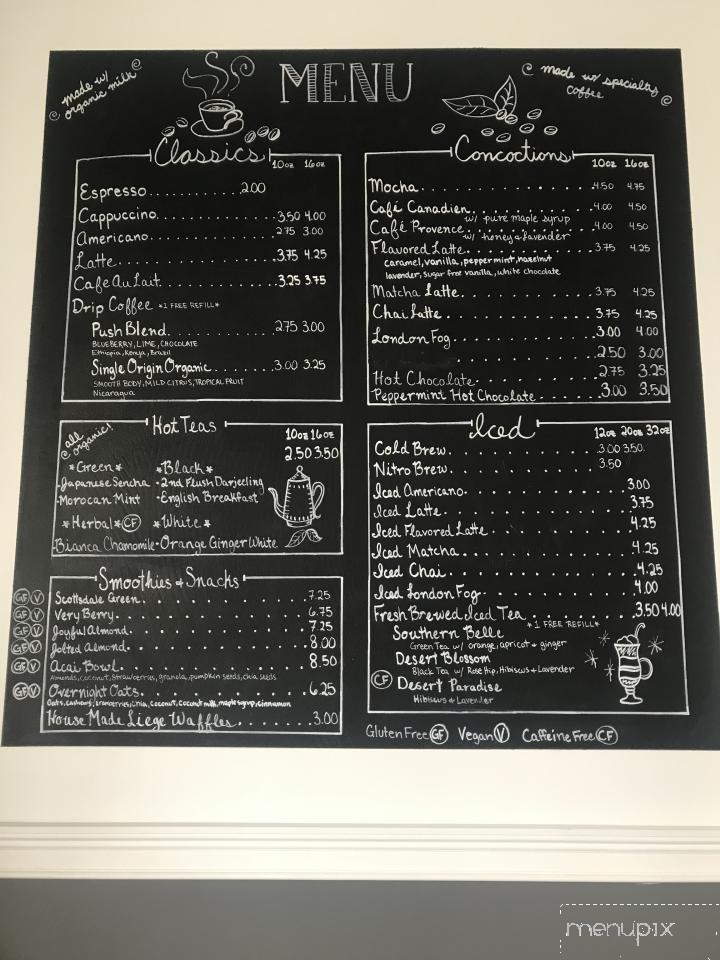 made w/
organic milk
MENU
made w/ specialty
coffee
Classics
10oz 16oz
Espresso 2.00
Cappuccino 3.50 4.00
Americano 2.75 3.00
Latte 3.75 4.25
Cafe Au Lait 3.25 3.75
Drip Coffee *1 FREE REFILL*
Push Blend 2.75 3.00
BLUEBERRY, LIME, CHOCOLATE
Ethiopia, Kenya, Brazil
Single Origin Organic 3.00 3.25
SMOOTH BODY, MILD CITRUS, TROPICAL FRUIT
Nicaragua
Concoctions
10oz 16oz
Mocha 4.50 4.75
Café Canadien 4.00 4.50
w/ pure maple syrup
Café Provence 4.00 4.50
w/ honey & lavender
Flavored Latte 3.75 4.25
caramel, vanilla, peppermint, hazelnut
lavender, sugar free vanilla, white chocolate
Matcha Latte 3.75 4.25
Chai Latte 3.75 4.25
London Fog 3.00 4.00
2.50 3.00
Hot Chocolate 2.75 3.25
Peppermint Hot Chocolate 3.00 3.50
Hot Teas
all organic!
10oz 16oz
2.50 3.50
*Green* *Black*
·Japanese Sencha ·2nd Flush Darjeeling
·Morocan Mint ·English Breakfast
*Herbal* CF *White*
·Bianca Chamomile ·Orange Ginger White
Smoothies & Snacks
GF V Scottsdale Green 7.25
GF V Very Berry 6.75
GF V Joyful Almond 7.25
GF V Jolted Almond 8.00
GF V Acai Bowl 8.50
Almonds, Coconut, Strawberries, granola, pumpkin seeds, chia seeds
GF V Overnight Oats 6.25
Oats, cashews, cranberries, chia, coconut, coconut milk, maple syrup, cinnamon
House Made Liege Waffles 3.00
Iced
12oz 20oz 32oz
Cold Brew 3.00 3.50
Nitro Brew 3.50
Iced Americano 3.00
Iced Latte 3.75
Iced Flavored Latte 4.25
Iced Matcha 4.25
Iced Chai 4.25
Iced London Fog 4.00
Fresh Brewed Iced Tea 3.50 4.00
*1 FREE REFILL*
Southern Belle
Green Tea w/ orange, apricot & ginger
Desert Blossom
Black Tea w/ Rose Hip, Hibiscus & Lavender
CF Desert Paradise
Hibiscus & Lavender
Gluten Free GF Vegan V Caffeine Free CF
menupix